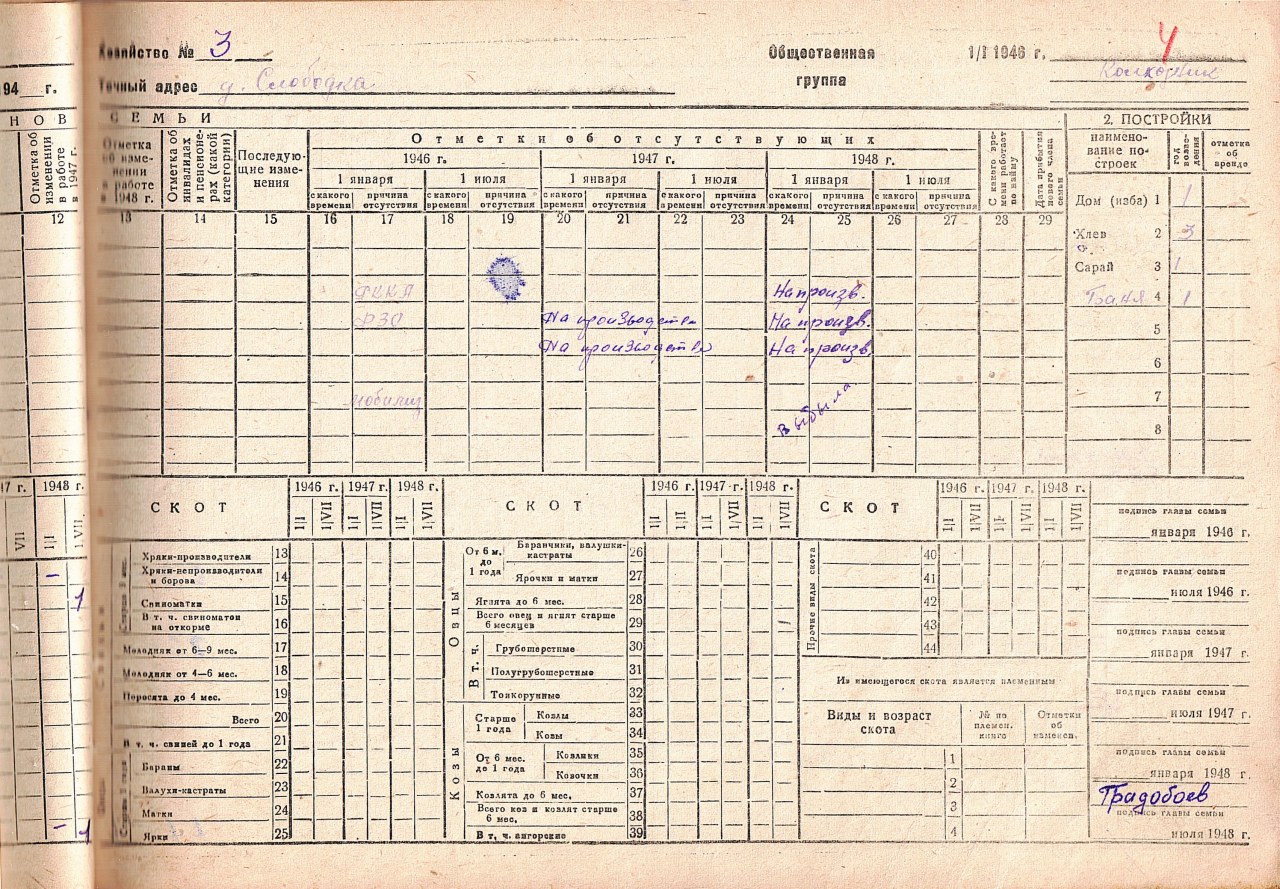 Хозяйство № 3
Общественная группа
1/I 1946 г.
4
Колхозник
94 г.
Точный адрес д. Слободка
НОВ
СЕМЬИ
2. ПОСТРОЙКИ
Отметка об изменений в работе в 1947 г.
Отметка об изменении в работе в 1948 г.
Отметка об инвалидах и пенсионерах (какой категории)
Последующие изменения
Отметки об отсутствующих
1946 г.
1947 г.
1948 г.
1 января
1 июля
1 января
1 июля
1 января
1 июля
с какого времени
причина отсутствия
с какого времени
причина отсутствия
с какого времени
причина отсутствия
с какого времени
причина отсутствия
с какого времени
причина отсутствия
с какого времени
причина отсутствия
С какого времени работает по найму
Дата прибытия нового члена семьи
наименование построек
год возведения
отметка об аренде
12 13 14 15 16 17 18 19 20 21 22 23 24 25 26 27 28 29
Дом (изба) 1 1
Хлев 2 3
Сарай 3 1
Баня 4 1
5
6
7
8
РККА
На произв.
ФЗО
На производстве
На произв.
На производстве
На произв.
мобилиз
выбыла
17 г. 1948 г.
VII 1|I 1.VII
–
1
–
1
СКОТ
1946 г. 1947 г. 1948 г.
1|I 1|VII 1|I 1|VII 1|I 1|VII
Хряки-производители 13
Хряки-непроизводители и борова 14
Свиноматки 15
В т. ч. свиноматок на откорме 16
Молодняк от 6—9 мес. 17
Молодняк от 4—6 мес. 18
Поросята до 4 мес. 19
Всего 20
В т. ч. свиней до 1 года 21
Бараны 22
Валухи-кастраты 23
Матки 24
Ярки 25
СКОТ
1946 г. 1947 г. 1948 г.
1|I 1|II 1|I 1/VII 1|I 1|VII
Овцы
От 6 м. до 1 года
Баранчики, валушки-кастраты 26
Ярочки и матки 27
Ягнята до 6 мес. 28
Всего овец и ягнят старше 6 месяцев 29 1
В т. ч.
Грубошерстные 30
Полугрубошерстные 31
Тонкорунные 32
Козы
Старше 1 года
Козлы 33
Козы 34
От 6 мес. до 1 года
Козлики 35
Козочки 36
Козлята до 6 мес. 37
Всего коз и козлят старше 6 мес. 38
В т, ч. ангорские 39
СКОТ
1946 г. 1947 г. 1948 г.
1|I 1|VII 1|I 1|VII 1|I 1|VII
Прочие виды скота
40
41
42
43
44
Из имеющегося скота является племенным
Виды и возраст скота
№ по племен. книге
Отметки об изменен.
1
2
3
4
подпись главы семьи
января 1946 г.
подпись главы семьи
июля 1946 г.
подпись главы семьи
января 1947 г.
подпись главы семьи
июля 1947 г.
подпись главы семьи
января 1948 г.
Градобоев
подпись главы семьи
июля 1948 г.